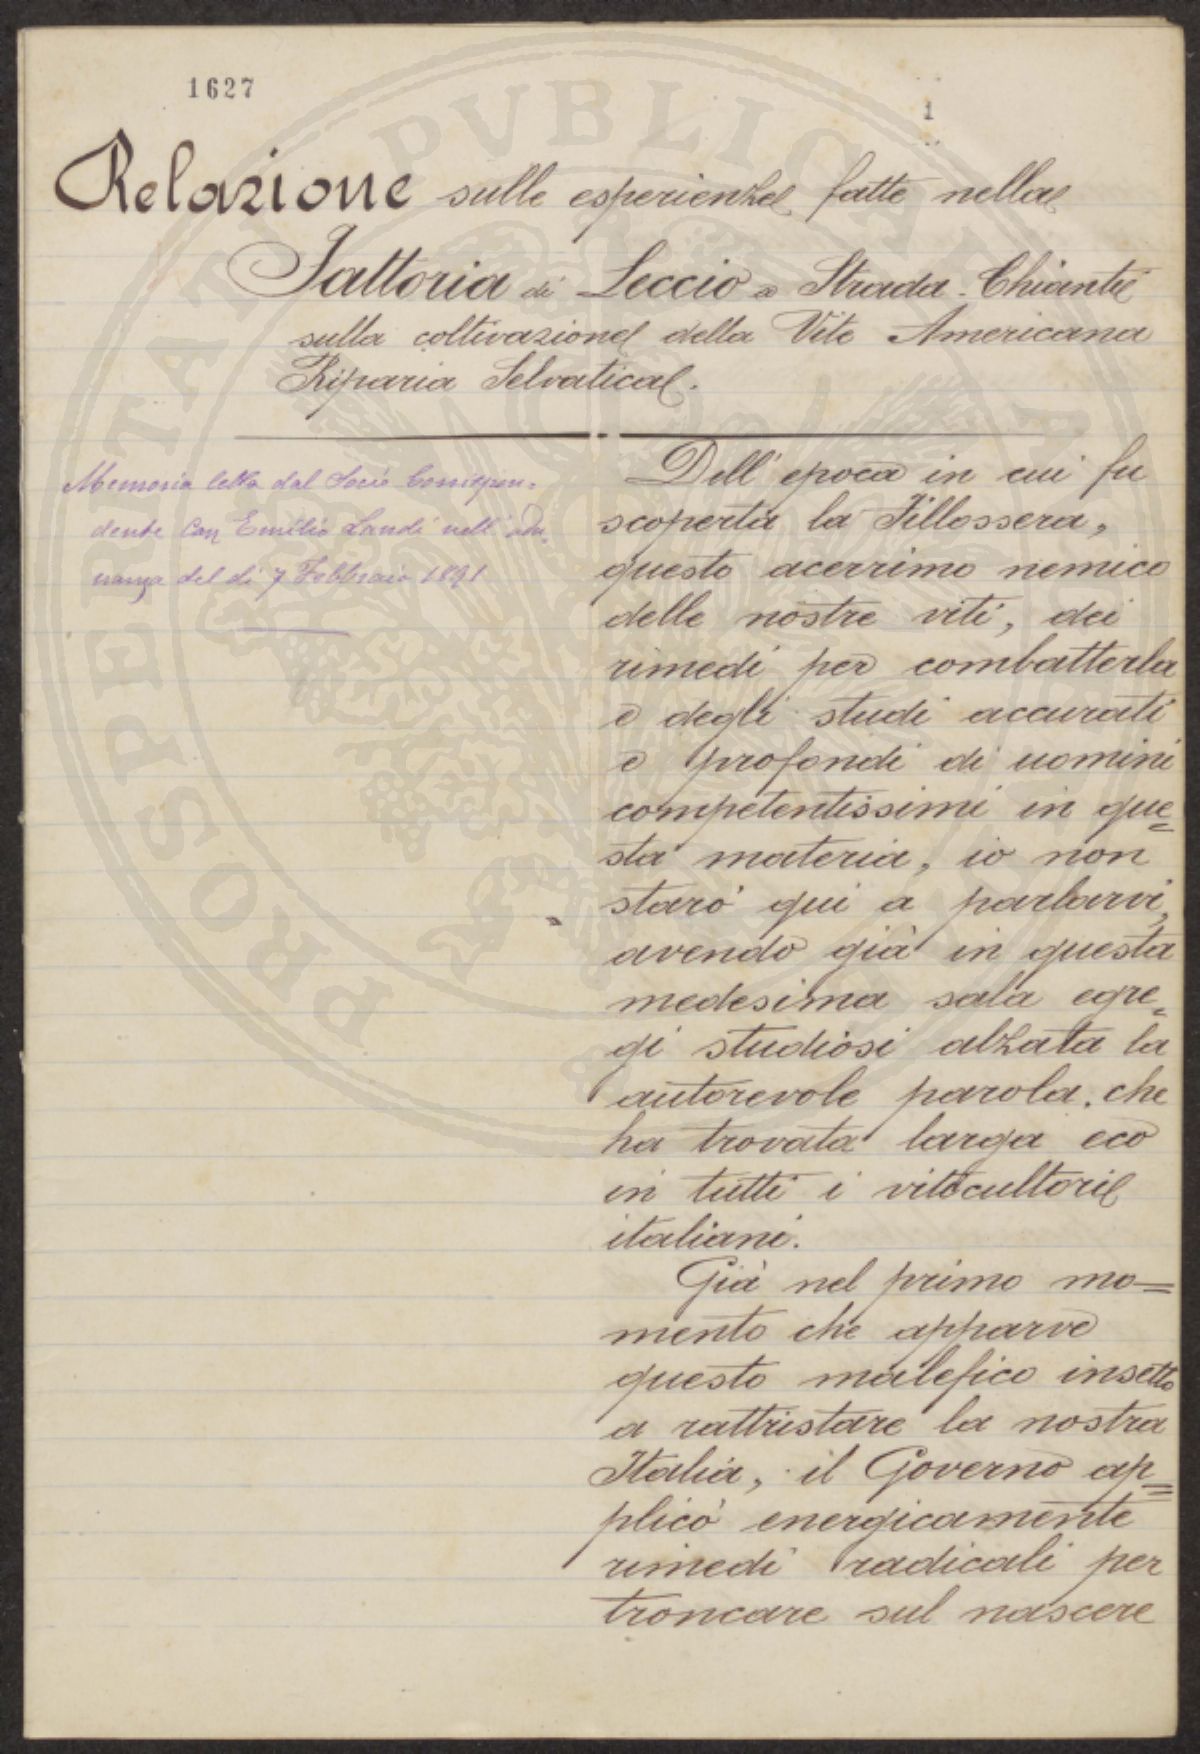 1627
1
Relazione sulle esperienze fatte nella
Fattoria di Leccio a Strada-Chianti
sulla coltivazione della Vite Americana
Riparia Selvatica.
Memoria letta dal Socio Corrispon=
dente Cav Emilio Landi nell'adu=
nanza del di 7 Febbraio 1891
Dell'epoca in cui fu
scoperta la Fillossera,
questo acerrimo nemico
delle nostre viti, dei
rimedi per combatterla
e degli studi accurati
e profondi di uomini
competentissimi in que=
sta materia, io non
starò qui a parlarvi,
avendo già in questa
medesima sala egre=
gi studiosi alzata la
autorevole parola, che
ha trovata larga eco
in tutti i viticultori
italiani.
Già nel primo mo=
mento che apparve
questo malefico insetto
a rattristare la nostra
Italia, il Governo ap=
plicò energicamente
rimedi radicali per
troncare sul nascere
PROSPERITATI PVBLICAE